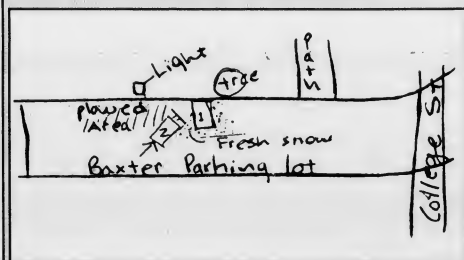 Light
tree
Path
plowed
Area
1
2
Fresh snow
Baxter Parking lot
College St